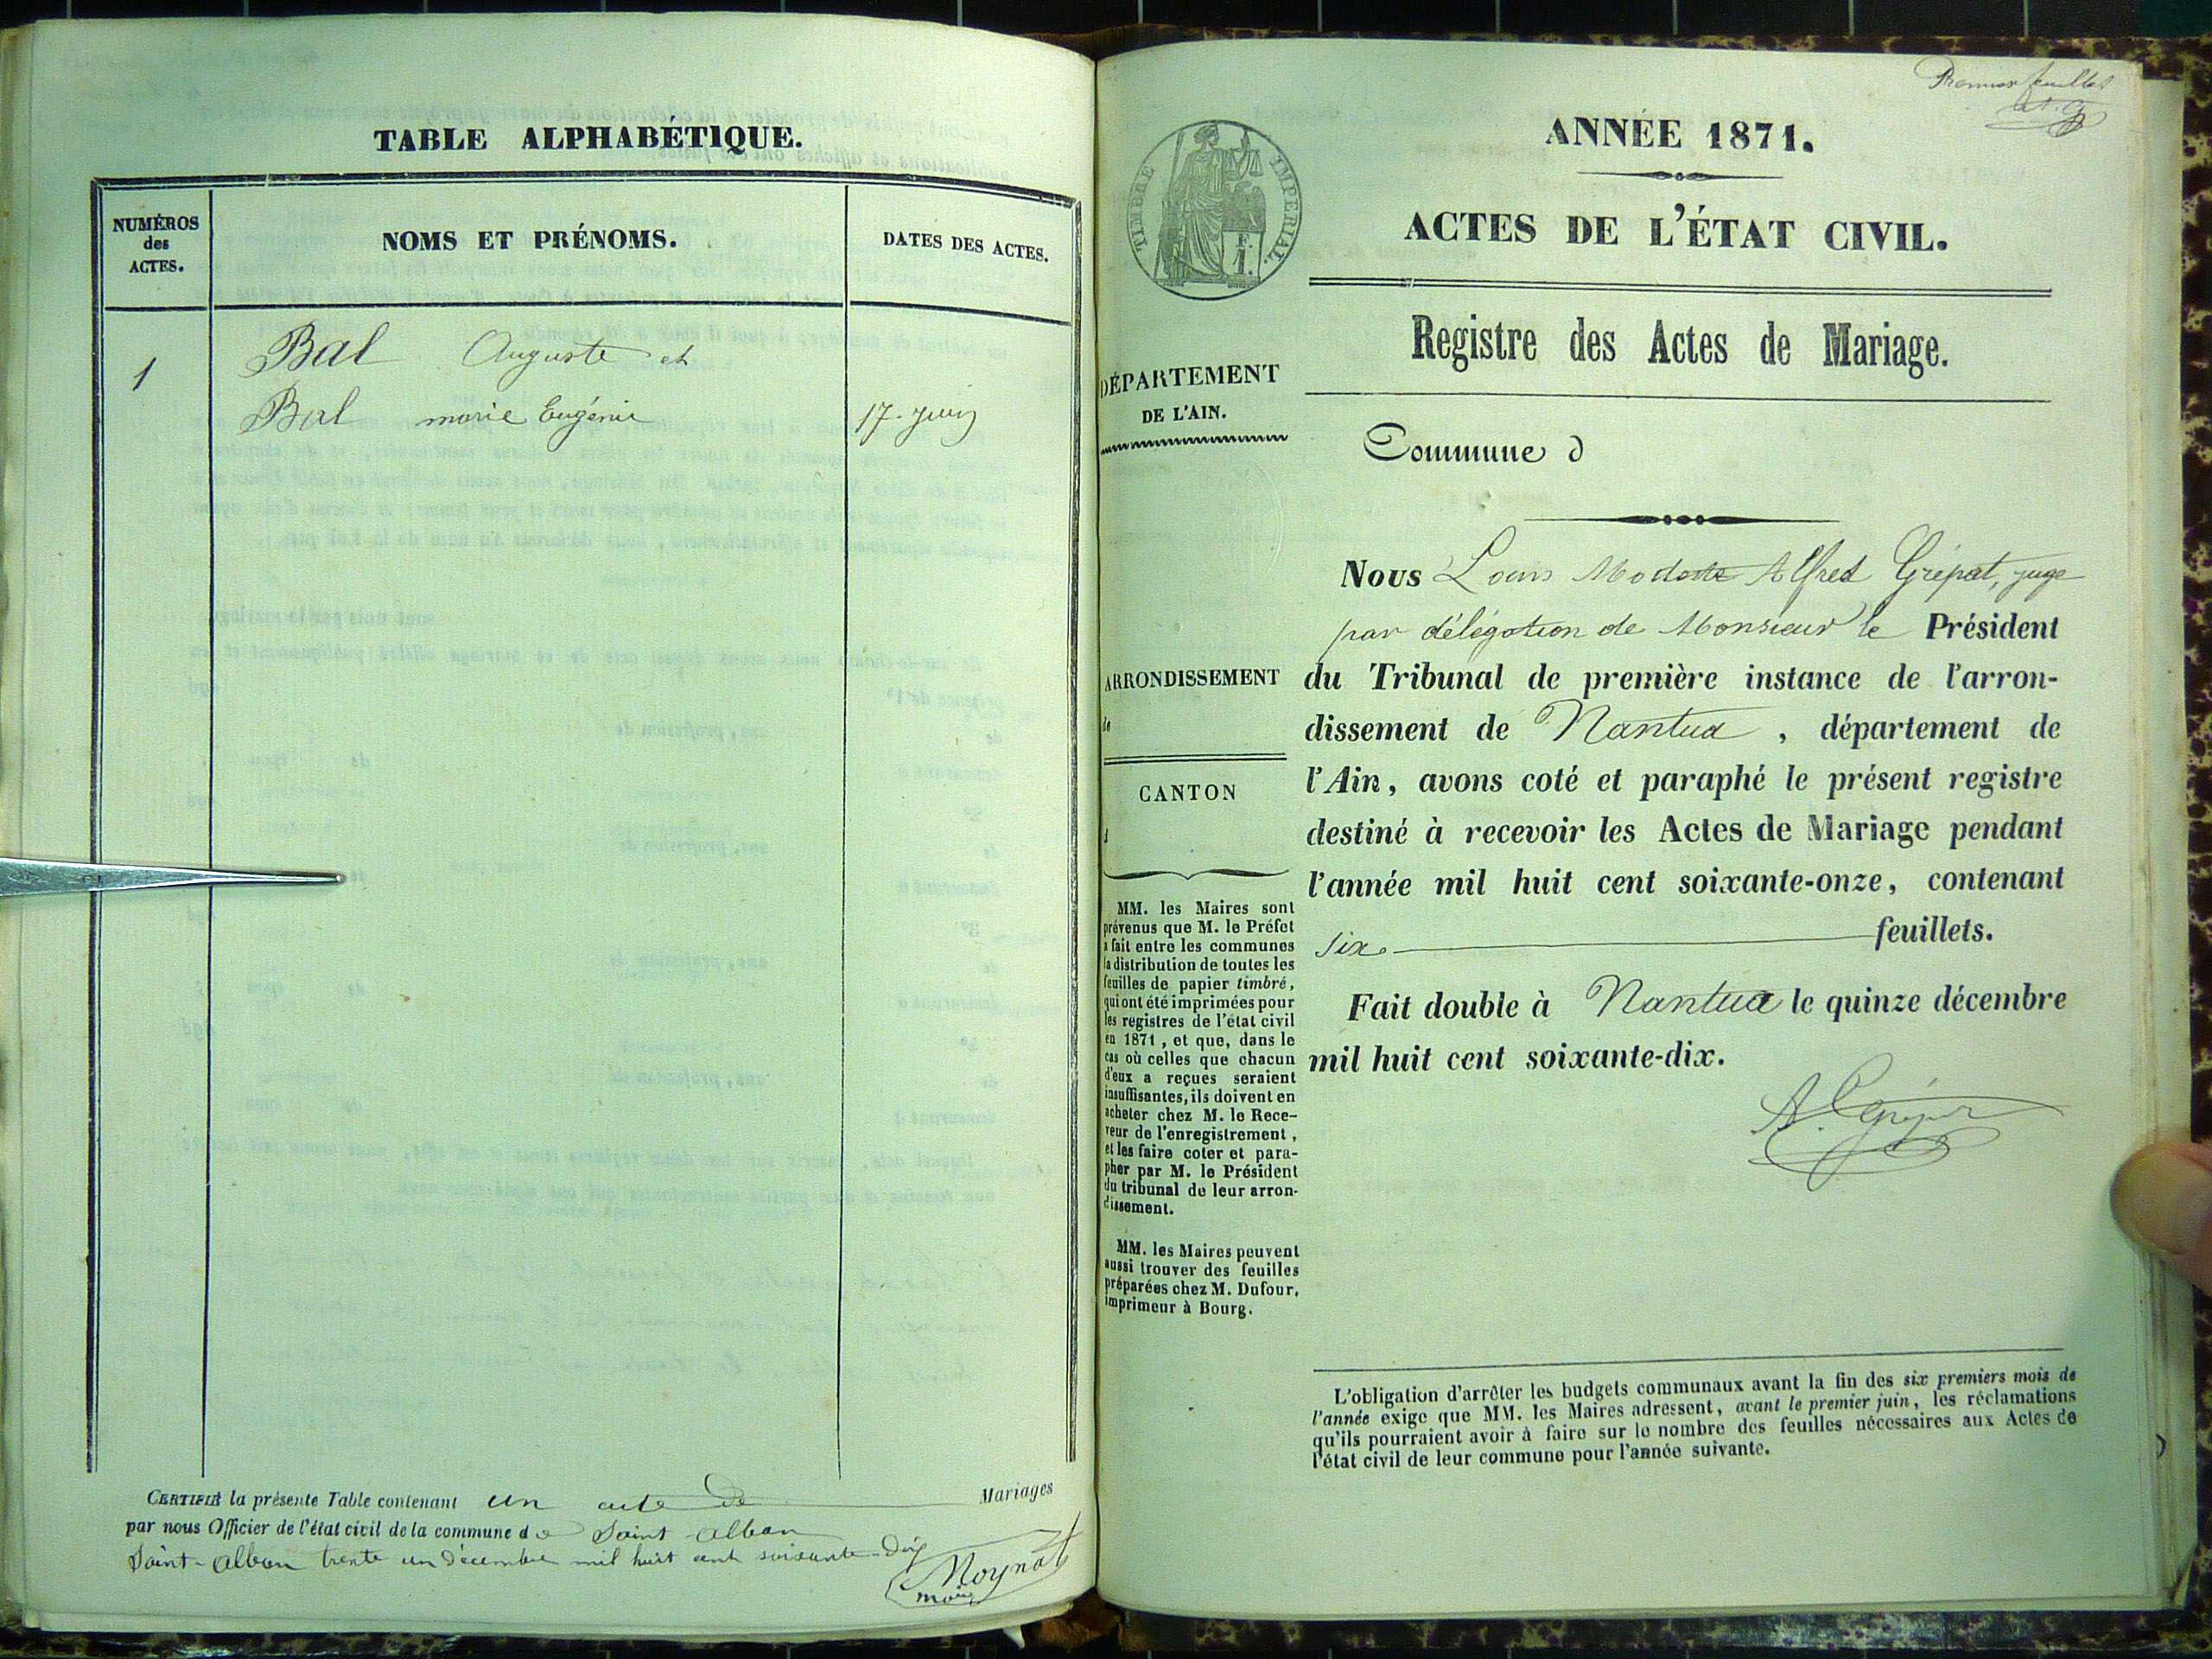 TABLE ALPHABÉTIQUE.
NUMÉROS
des
ACTES.
NOMS ET PRÉNOMS.
DATES DES ACTES.
1
Bal Auguste et
Bal marie Eugénie
17 juin
CERTIFIÉ la présente Table contenant un acte de Mariages
par nous Officier de l'état civil de la commune de Saint-Alban
Saint-alban trente un décembre mil huit cent soixante-dix
Moynat
maire
Premier feuillet
A. G
TIMBRE IMPÉRIAL.
ANNÉE 1871.
ACTES DE L'ÉTAT CIVIL.
Registre des Actes de Mariage.
DÉPARTEMENT
DE L'AIN.
Commune d
ARRONDISSEMENT
de
CANTON
d
MM. les Maires sont
prévenus que M. le Préfet
a fait entre les communes
la distribution de toutes les
feuilles de papier timbré,
qui ont été imprimées pour
les registres de l'état civil
en 1871, et que, dans le
cas où celles que chacun
d'eux a reçues seraient
insuffisantes, ils doivent en
acheter chez M. le Rece-
veur de l'enregistrement,
et les faire coter et para-
pher par M. le Président
du tribunal de leur arron-
dissement.
MM. les Maires peuvent
aussi trouver des feuilles
préparées chez M. Dufour,
imprimeur à Bourg.
Nous Louis Modeste Alfred Grépat, juge
par délégation de Monsieur le Président
du Tribunal de première instance de l'arron-
dissement de Nantua, département de
l'Ain, avons coté et paraphé le présent registre
destiné à recevoir les Actes de Mariage pendant
l'année mil huit cent soixante-onze, contenant
six feuillets.
Fait double à Nantua le quinze décembre
mil huit cent soixante-dix.
L'obligation d'arrêter les budgets communaux avant la fin des six premiers mois de
l'année exige que MM. les Maires adressent, avant le premier juin, les réclamations
qu'ils pourraient avoir à faire sur le nombre des feuilles nécessaires aux Actes de
l'état civil de leur commune pour l'année suivante.